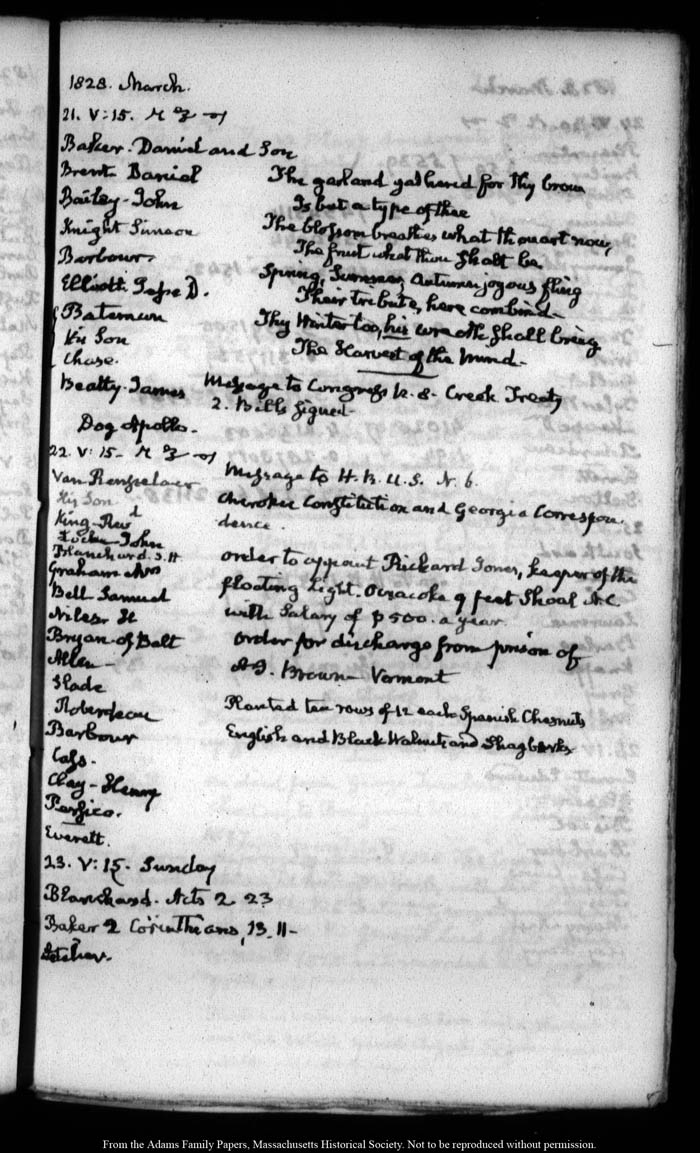 1828. March.
21. V:15.
Baker. Daniel and Son
Brent Daniel
Bailey- John
Knight Simeon
Barbour
Elliott. Jesse D.
Bateman
his Son
Chase.
Beatty. James
Dog Apollo.
The garland gathered for thy brow
Is but a type of thee
The blossom breathes what thou art now,
The fruit what thou shalt be.
Spring, Summer, Autumn joyous fling
Their tribute, here combind-
Thy Winter too, his wreath shall bring
The Harvest of the mind-
Message to Congress Creek Treaty
2. Bills signed-
22. V:15-
Van Rensselaer
his Son
King-
John
Blanchard. S. H
Graham
Bell Samuel
Niles. H
Bryan of Balt
Allen-
Slade
Roberdeau
Barbour
Cass.
Clay- Henry
Persico.
Everett.
Message to H.R.U.S. N. 6.
Cherokee Constitution and Georgia Correspon.
dence.
order to appoint Richard Jones, keeper of the
floating Light. Ocracoke 9 feet Shoal N.C.
with Salary of $500. a year.
order for discharge from prison of
Brown Vermont
Planted ten rows of 12 each Spanish Chesnuts
English and Black Walnuts and Shagbarks
23. V:15. Sunday
Blanchard. Acts 2. 23
Baker 2 Corinthians, 13. 11-
Letcher.
From the Adams Family Papers, Massachusetts Historical Society. Not to be reproduced without permission.